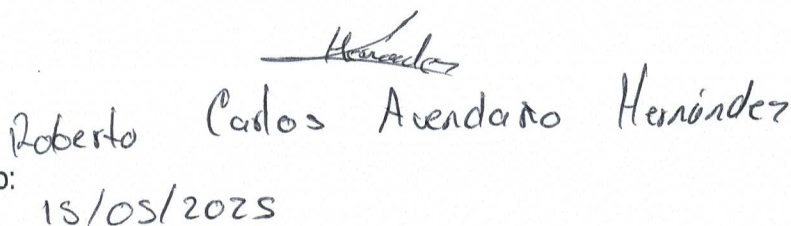 Hernandez
Roberto Carlos Avendaño Hernández
o:
15/05/2025